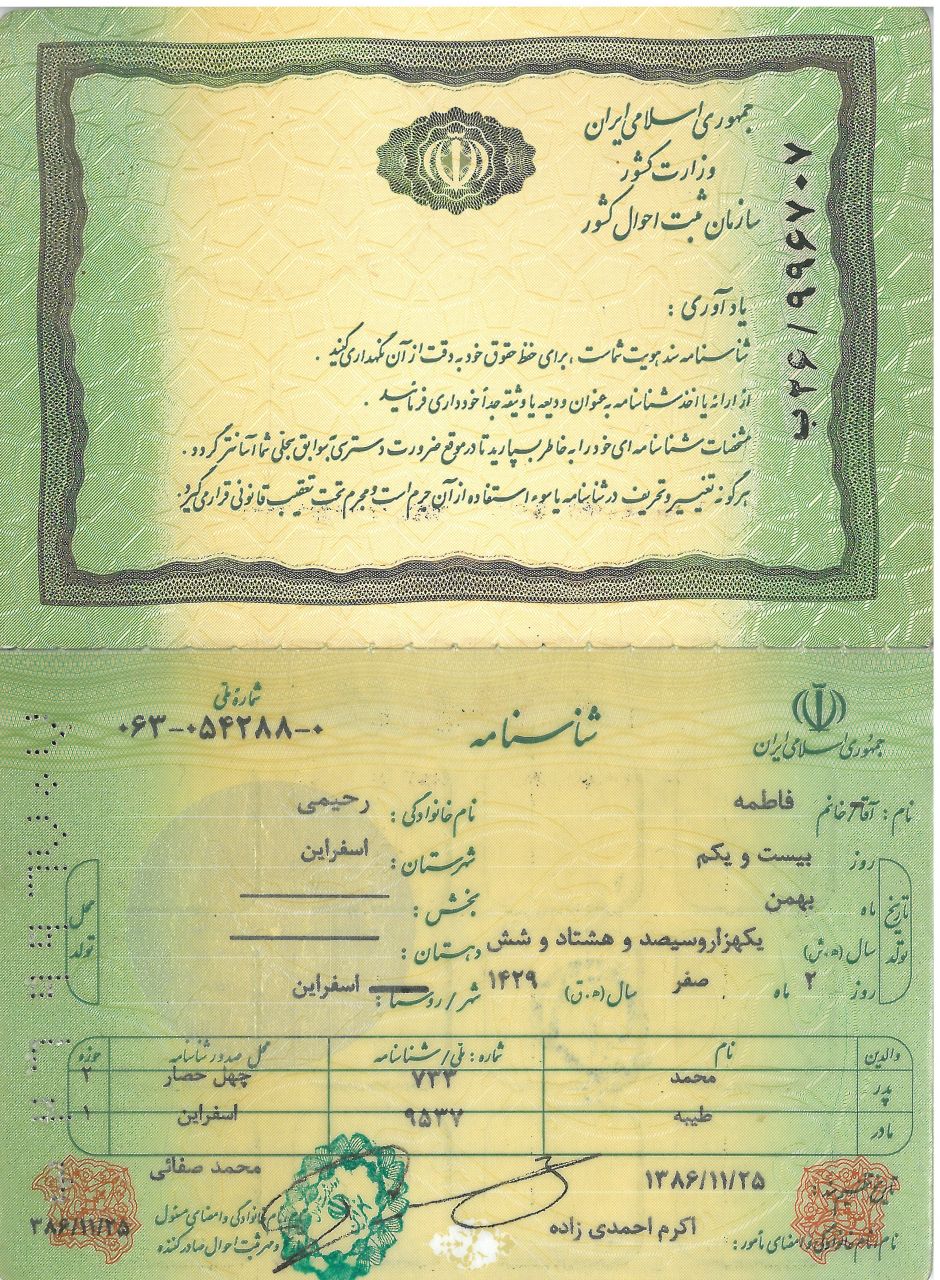 جمهوری اسلامی ایران
وزارت کشور
سازمان ثبت احوال کشور
ب۳۶/۹۹۶۷۰۷
یادآوری :
شناسنامه سند هویت شماست ، برای حفظ حقوق خود به دقت از آن نگهداری کنید .
از ارائه یا اخذ شناسنامه به عنوان ودیعه یا وثیقه جداً خودداری فرمائید .
مشخصات شناسنامه ای خود را به خاطر بسپارید تا در موقع ضرورت دسترسی به سوابق سجلی شما آسانتر گردد .
هرگونه تغییر و تحریف در شناسنامه یا سوء استفاده از آن جرم است و مجرم تحت تعقیب قانونی قرار می گیرد .
جمهوری اسلامی ایران
شناسنامه
شمارهٔ ملی
۰۶۳-۰۵۴۲۸۸-۰
نام : آقا/خانم فاطمه نام خانوادگی : رحیمی
تاریخ تولد
روز بیست و یکم شهرستان : اسفراین
ماه بهمن بخش :
سال (ه.ش) یکهزاروسیصد و هشتاد و شش دهستان :
روز ۲ ماه صفر سال (ه.ق) ۱۴۲۹ شهر/روستا : اسفراین
محل تولد
والدین نام شماره : ملی/شناسنامه محل صدور شناسنامه حوزه
پدر محمد ۷۳۳ چهل حصار ۲
مادر طیبه ۹۵۳۷ اسفراین ۱
۱۳۸۶/۱۱/۲۵ محمد صفائی
نام، نام خانوادگی و امضای مأمور : اکرم احمدی زاده
نام خانوادگی و امضای مسئول
و مهر ثبت احوال صادر کننده
۱۳۸۶/۱۱/۲۵